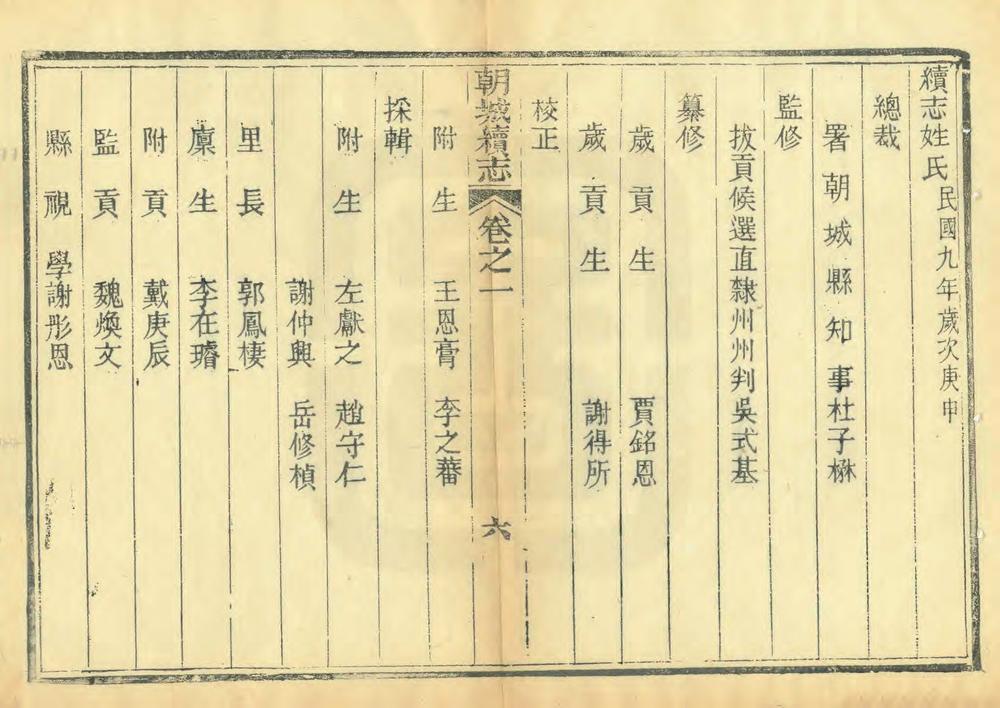 續志姓氏民國九年歲次庚申
總裁
署朝城縣知事杜子楙
監修
拔貢候選直隸州州判吳式基
纂修
歲貢生 賈銘恩
歲貢生 謝得所
校正
朝城續志 卷之一 六
附生 王恩膏 李之蕃
採輯
附生 左獻之 趙守仁
謝仲興 岳修楨
里長 郭鳳棲
廩生 李在璿
附貢 戴庚辰
監貢 魏煥文
縣視學謝彤恩